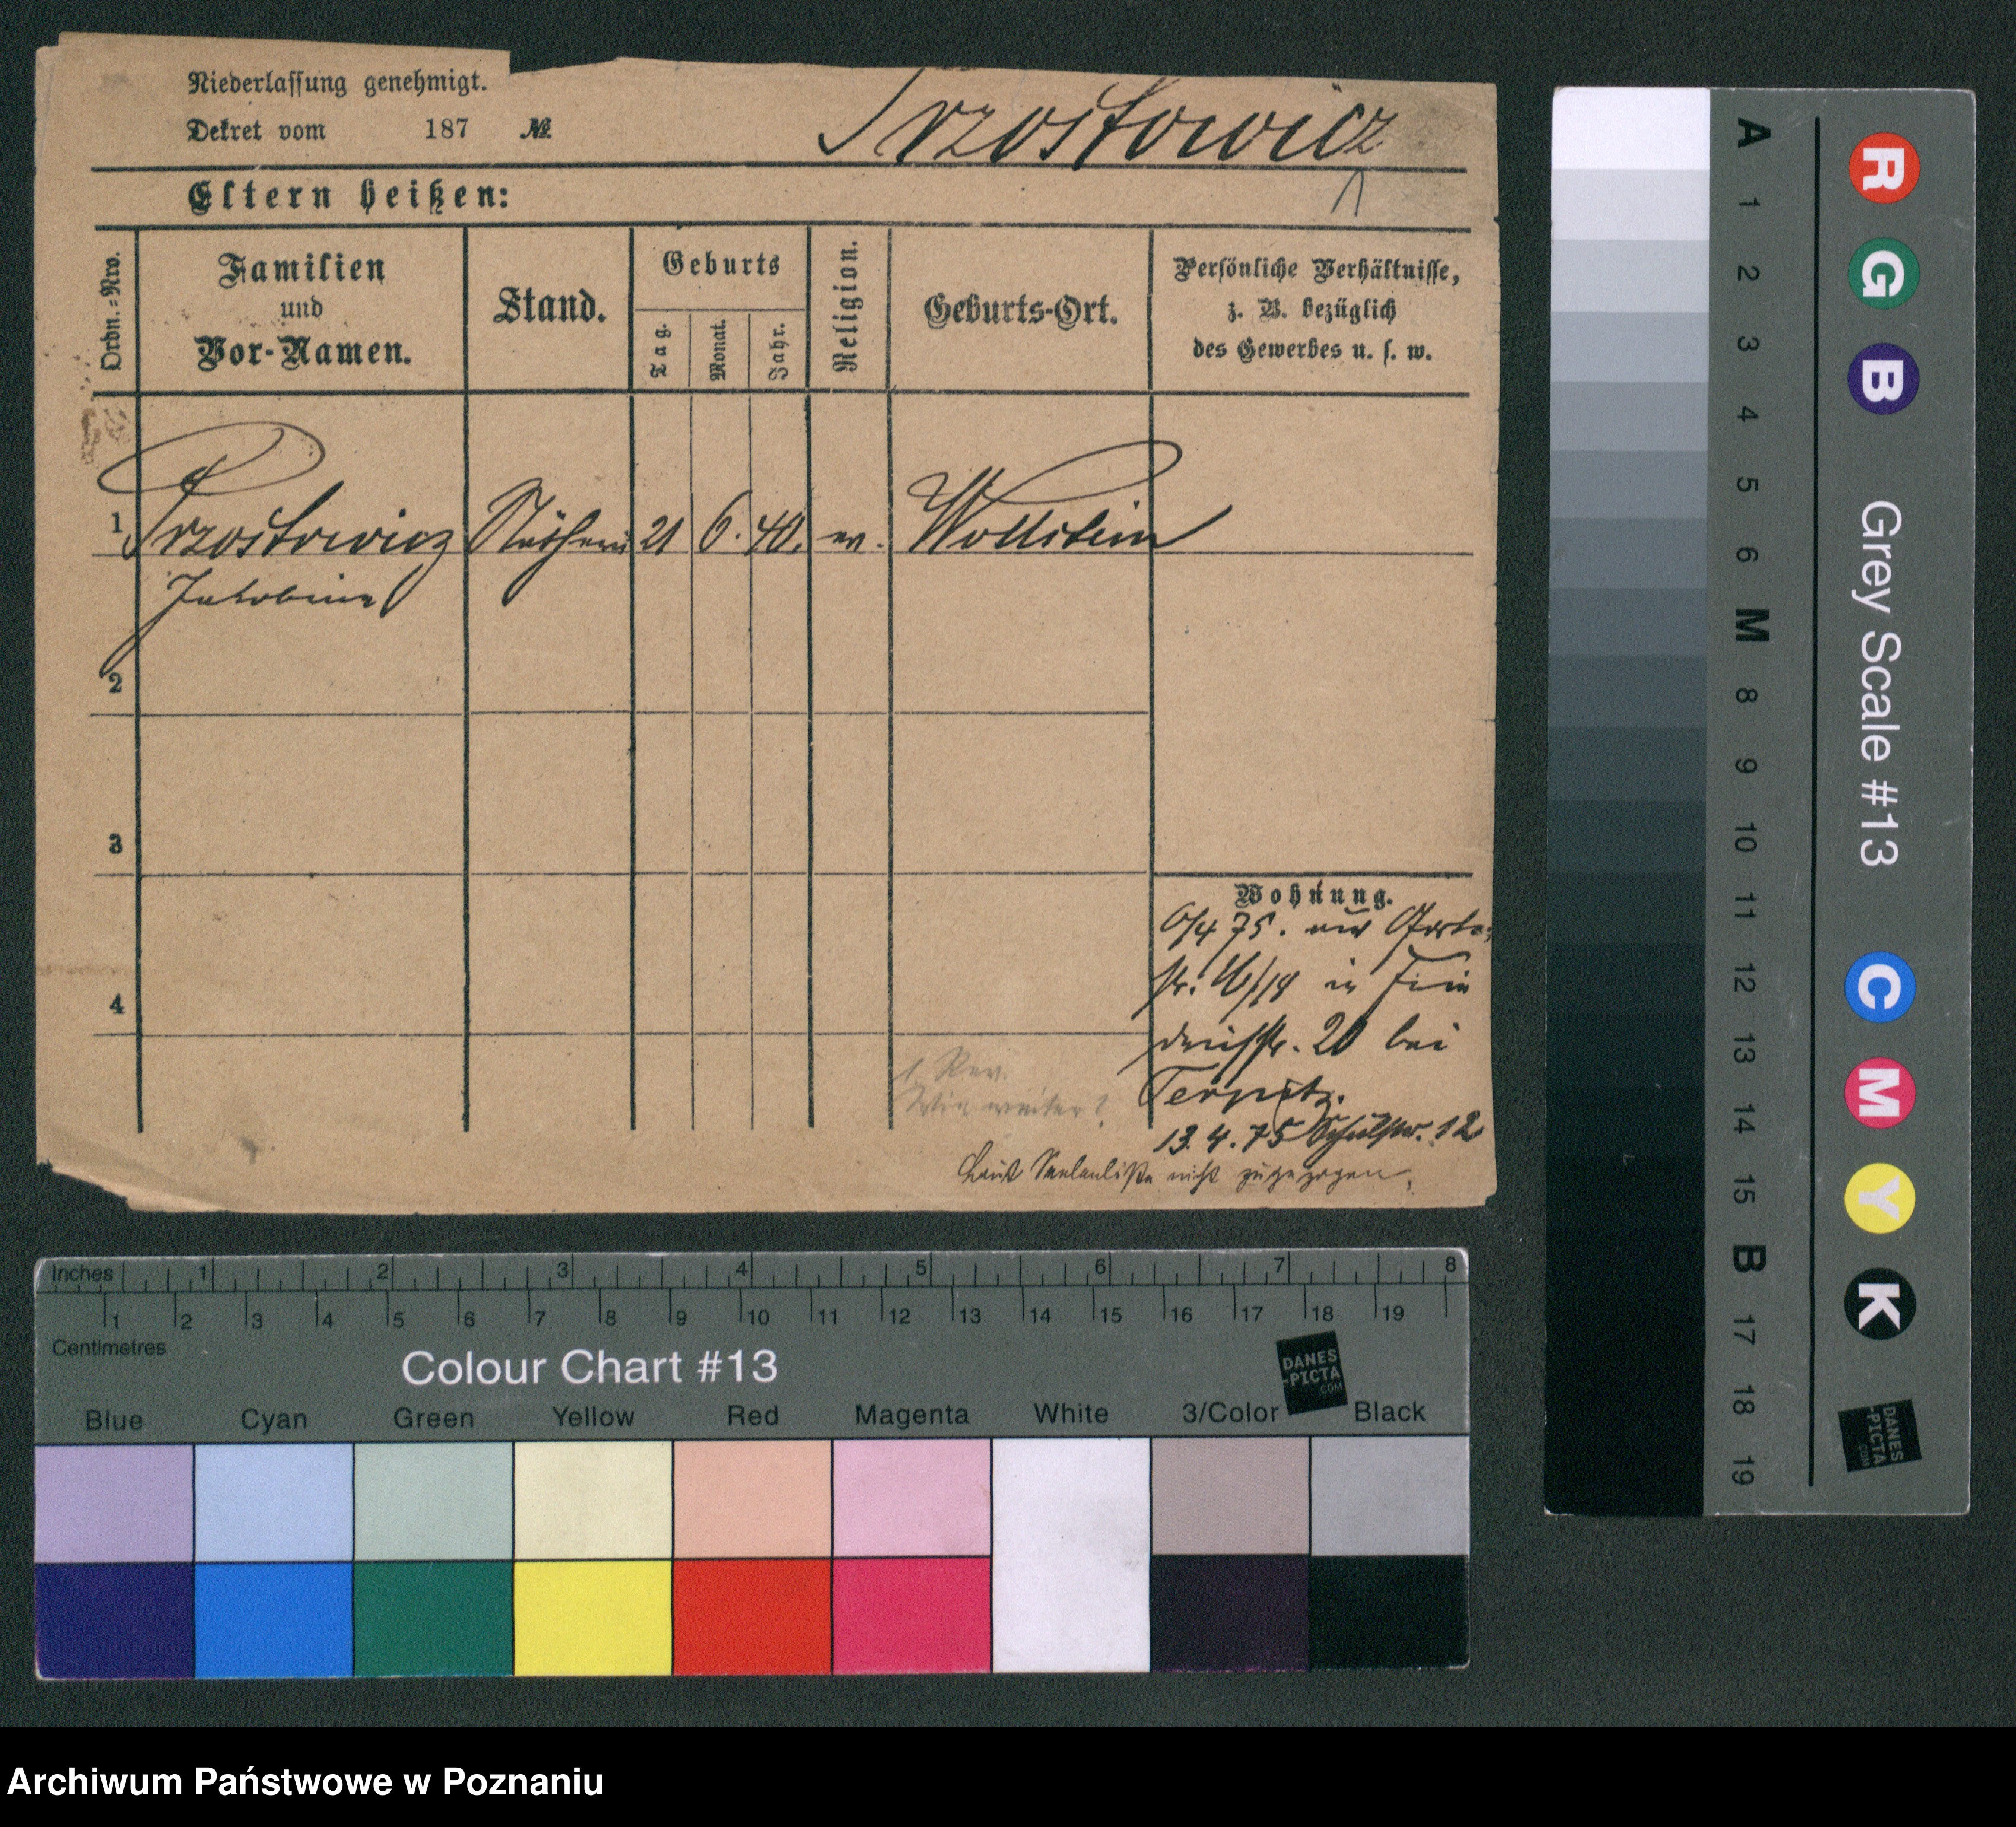 Niederlassung genehmigt.
Dekret vom 187 №
Przostowicz
Eltern heißen:
Ordn.=Nro.
Familien
und
Vor-Namen.
Stand.
Geburts
Tag.
Monat.
Jahr.
Religion.
Geburts-Ort.
Persönliche Verhältnisse,
z. B. bezüglich
des Gewerbes u. s. w.
1 Przostowicz 21 6. 40. ev. Wollstein
2
3
4
Wohnung.
6/4 75.
in
20 bei
13. 4. 75 12
1 Rev.
weiter?
Laut nicht zugezogen.
Inches 1 2 3 4 5 6 7 8
1 2 3 4 5 6 7 8 9 10 11 12 13 14 15 16 17 18 19
Centimetres
Colour Chart #13
DANES
-PICTA
.COM
Blue Cyan Green Yellow Red Magenta White 3/Color Black
Grey Scale #13
R G B C M Y K
A 1 2 3 4 5 6 M 8 9 10 11 12 13 14 15 B 17 18 19
DANES
-PICTA
.COM
Archiwum Państwowe w Poznaniu